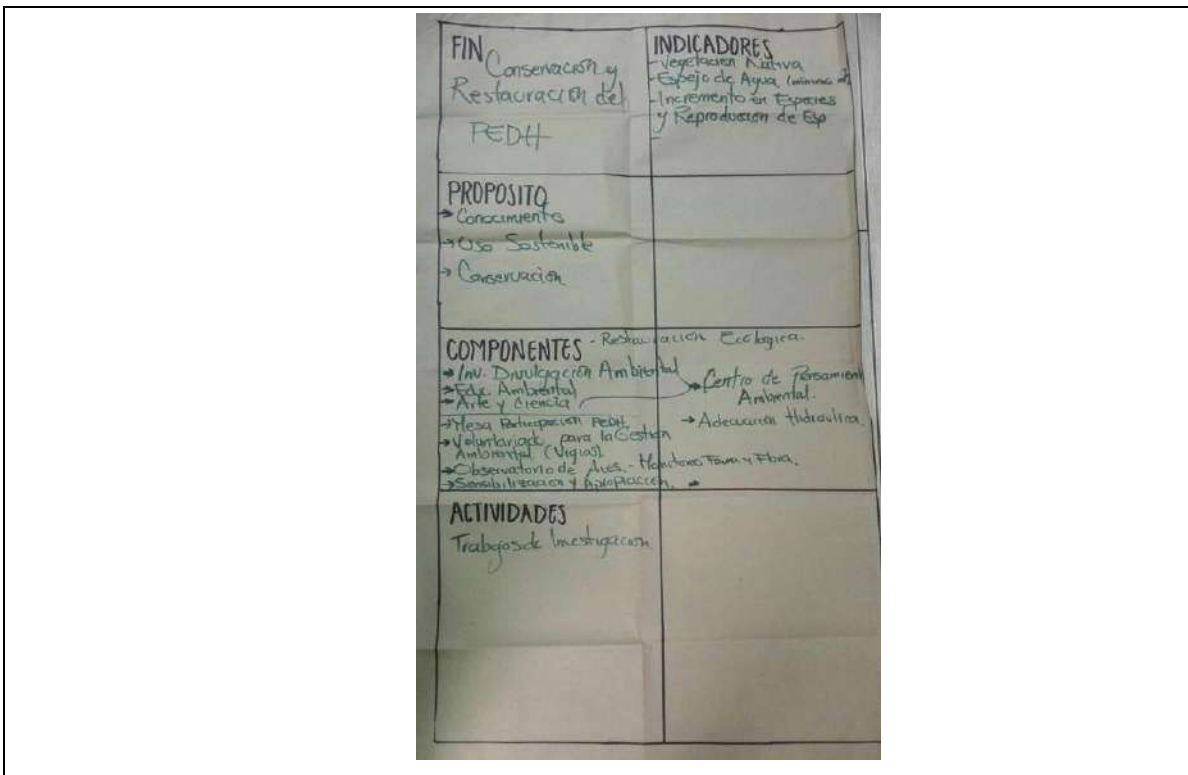 FIN
Conservación y
Restauración del
PEDH
INDICADORES
- Vegetación Nativa
- Espejo de Agua
- Incremento en Especies
y Reproducción de Esp
PROPOSITO
→ Conocimientos
→ Uso Sostenible
→ Conservación
COMPONENTES - Restauración Ecologica.
→ Inv. Divulgación Ambiental
→ Edu. Ambiental
→ Arte y Ciencia
→ Centro de Pensamient
Ambiental.
→ Mesa Participación PEDH
→ Adecuación Hidraulica.
→ Voluntariado para la Gestión
Ambiental (Vigias)
→ Observatorio de Aves. - Monitoreo Fauna y Flora.
→ Sensibilización y Apropiación. →
ACTIVIDADES
Trabajos de Investigacion